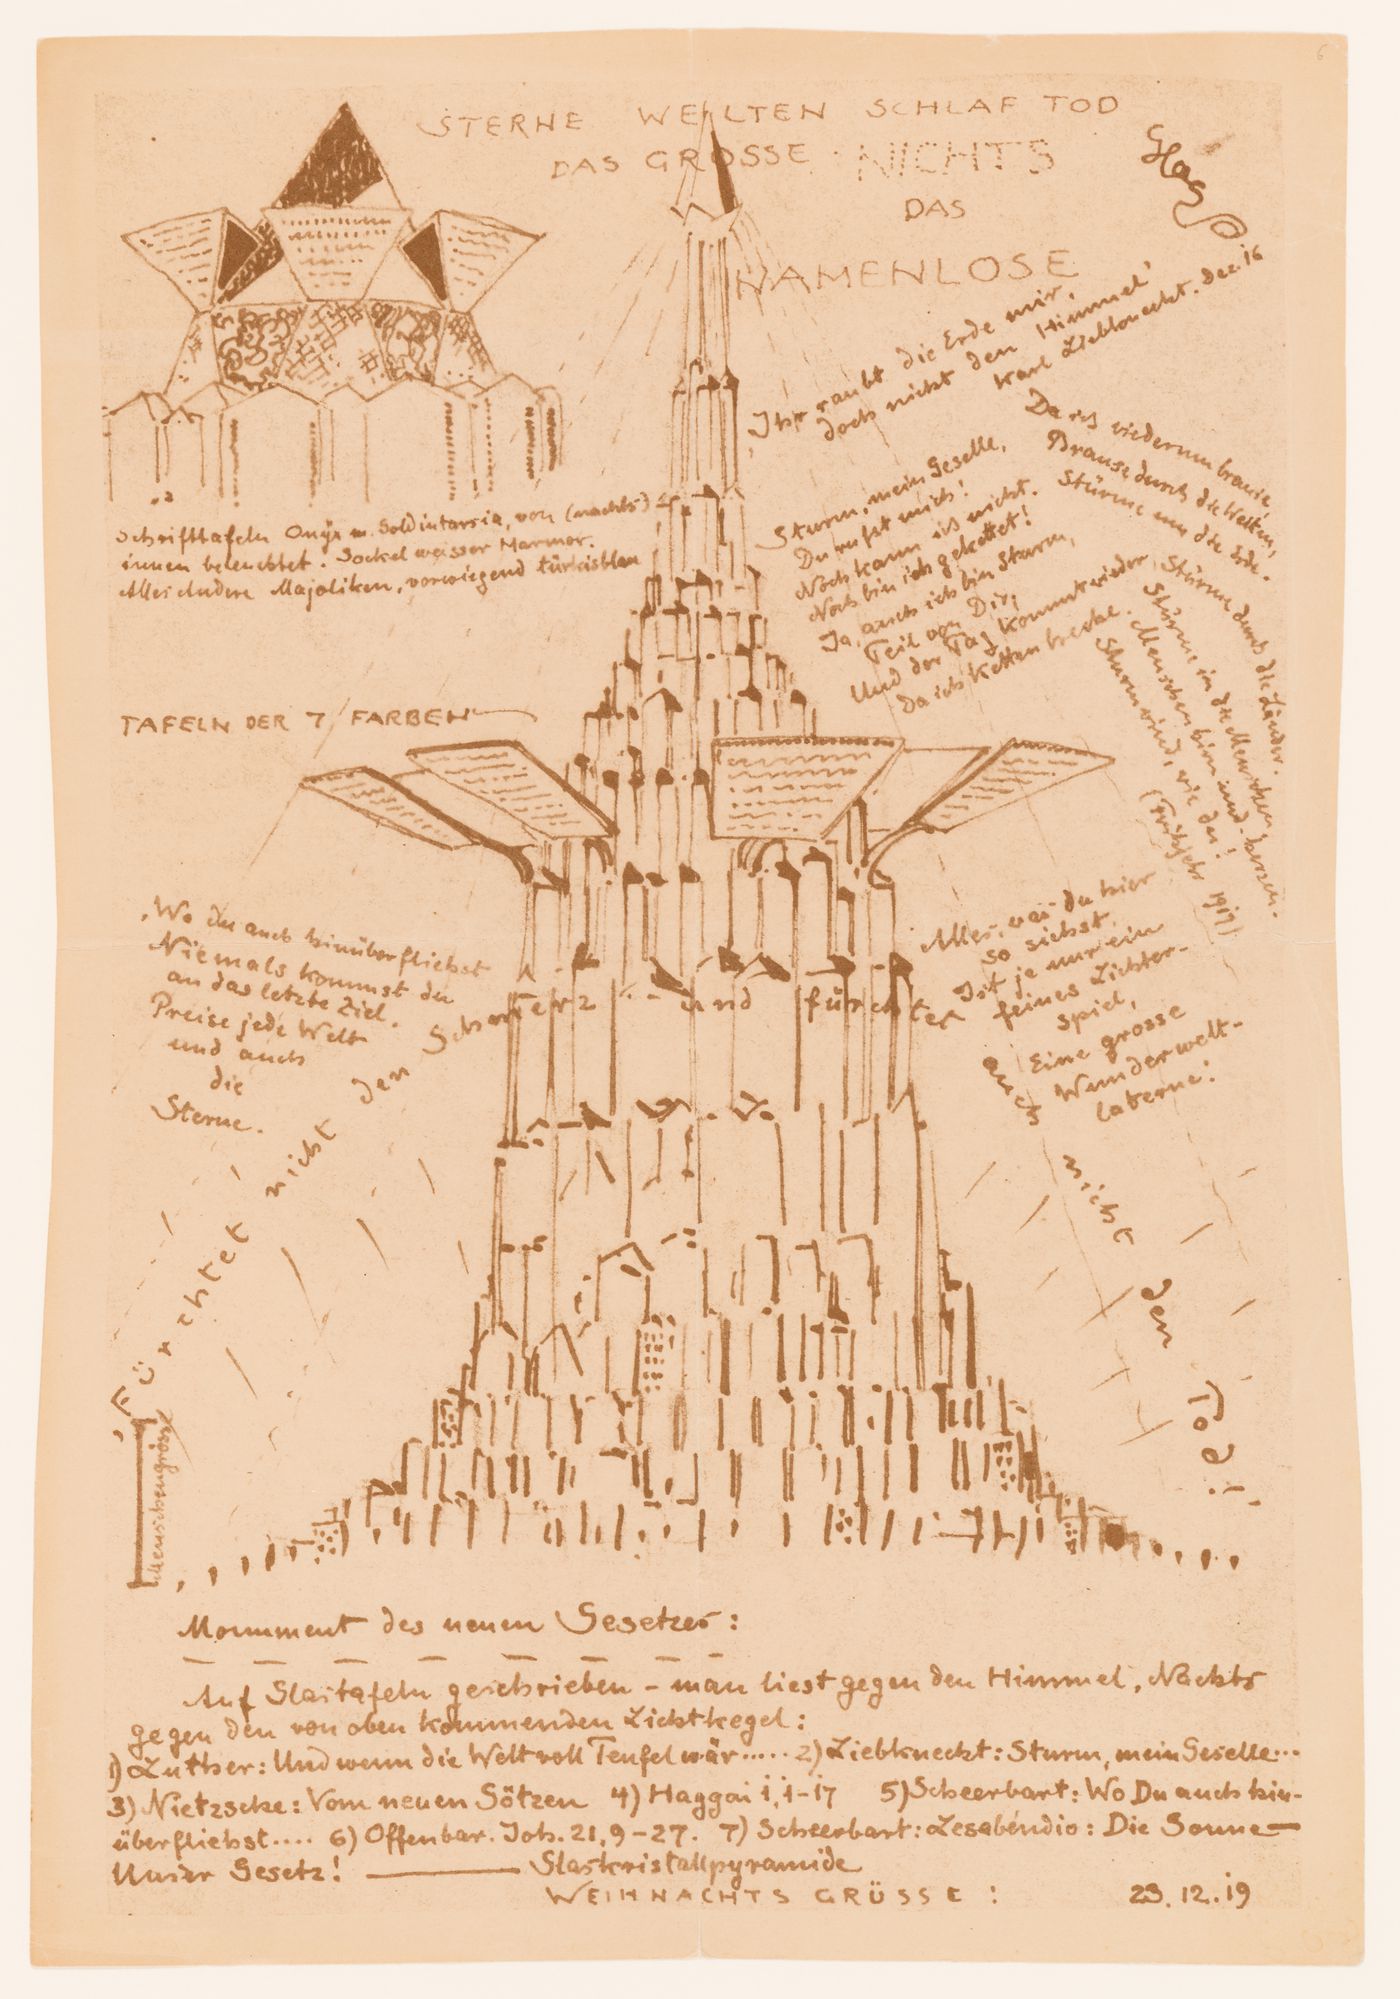 6
STERNE WELTEN SCHLAF TOD
DAS GROSSE NICHTS
DAS
NAMENLOSE
Glas
Ihr raubt die Erde mir,
doch nicht den Himmel
Karl Liebknecht. Dez. 16
Schrifttafeln Onyx m. Goldintarsia, von (nachts)
innen beleuchtet. Sockel weisser Marmor.
Alles Andere Majoliken, vorwiegend türkisblau
Sturm, mein Geselle,
Du rufst mich!
Noch kann ich nicht.
Noch bin ich gekettet!
Ja, auch ich bin Sturm,
Teil von Dir;
Und der Tag kommt wieder,
Da ich Ketten breche.
Da ich wiederum brause,
Brause durch die Weiten,
Stürme um die Erde.
Stürme durch die Länder.
Stürme in die Menschen
Menschenhirn und -herzen.
Sturmwind, wie du!
(Frühjahr 1917)
TAFELN DER 7 FARBEN
Wo du auch hinüberfliehst
Niemals kommst du
an das letzte Ziel.
Preise jede Welt
und auch
die
Sterne.
Alles, was du hier
so siehst,
Ist ja nur ein
feines Lichter-
spiel,
Eine grosse
Wunderwelt-
laterne!
Fürchtet nicht den Schmerz und fürchtet euch nicht den Tod!
Menschengrösse
Monument des neuen Gesetzes:
Auf Glastafeln geschrieben - man liest gegen den Himmel, Nachts
gegen den von oben kommenden Lichtkegel:
1) Luther: Und wenn die Welt voll Teufel wär..... 2) Liebknecht: Sturm, mein Geselle...
3) Nietzsche: Vom neuen Götzen 4) Haggai 1, 1-17 5) Scheerbart: Wo Du auch hin-
überfliehst.... 6) Offenbar. Joh. 21, 9-27. 7) Scheerbart: Lesabéndio: Die Sonne—
Unser Gesetz! ——— Glaskristallpyramide
WEIHNACHTSGRÜSSE! 23.12.19